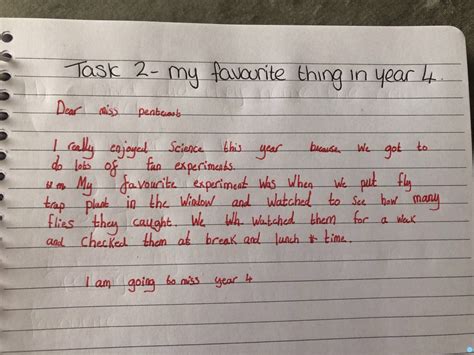 Task 2 - my favourite thing in year 4.
Dear miss pentecost
I really enjoyed Science this year because we got to
do lots of fun experiments.
My favourite experiment was when we put fly
trap plant in the window and watched to see how many
flies they caught. We watched them for a week
and checked them at break and lunch time.
I am going to miss year 4